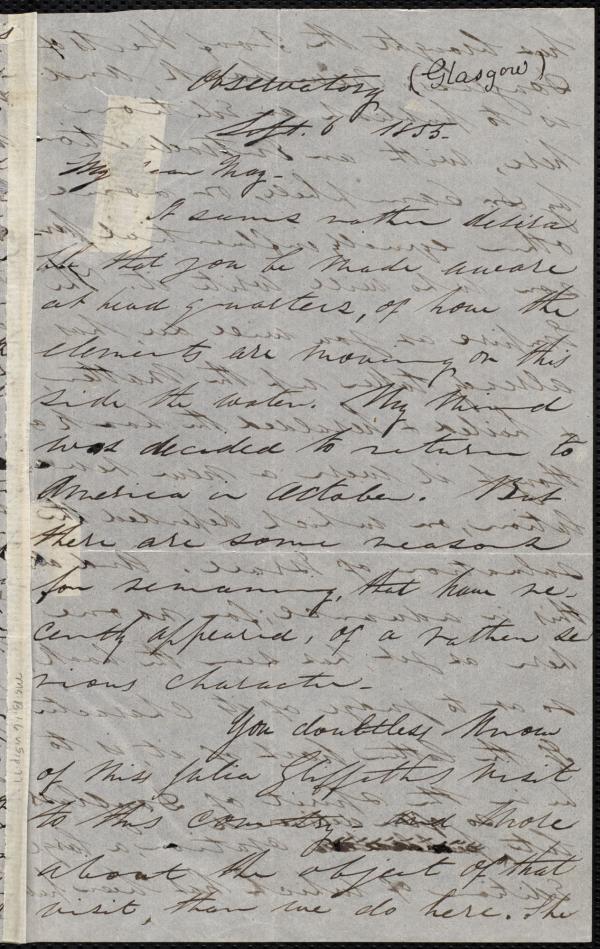 Observatory (Glasgow)
Sept. 6 1855.
My Dear May-
It seems rather desira
ble that you be made aware
at head quarters, of how the
elements are moving on this
side the water. My mind
was decided to return to
America in October. But
there are some reasons
for remaining, that have re-
cently appeared, of a rather se
rious character-
You doubtless know
of Miss Julia Griffiths visit
to this country- and more
about the object of that
visit, than we do here. She